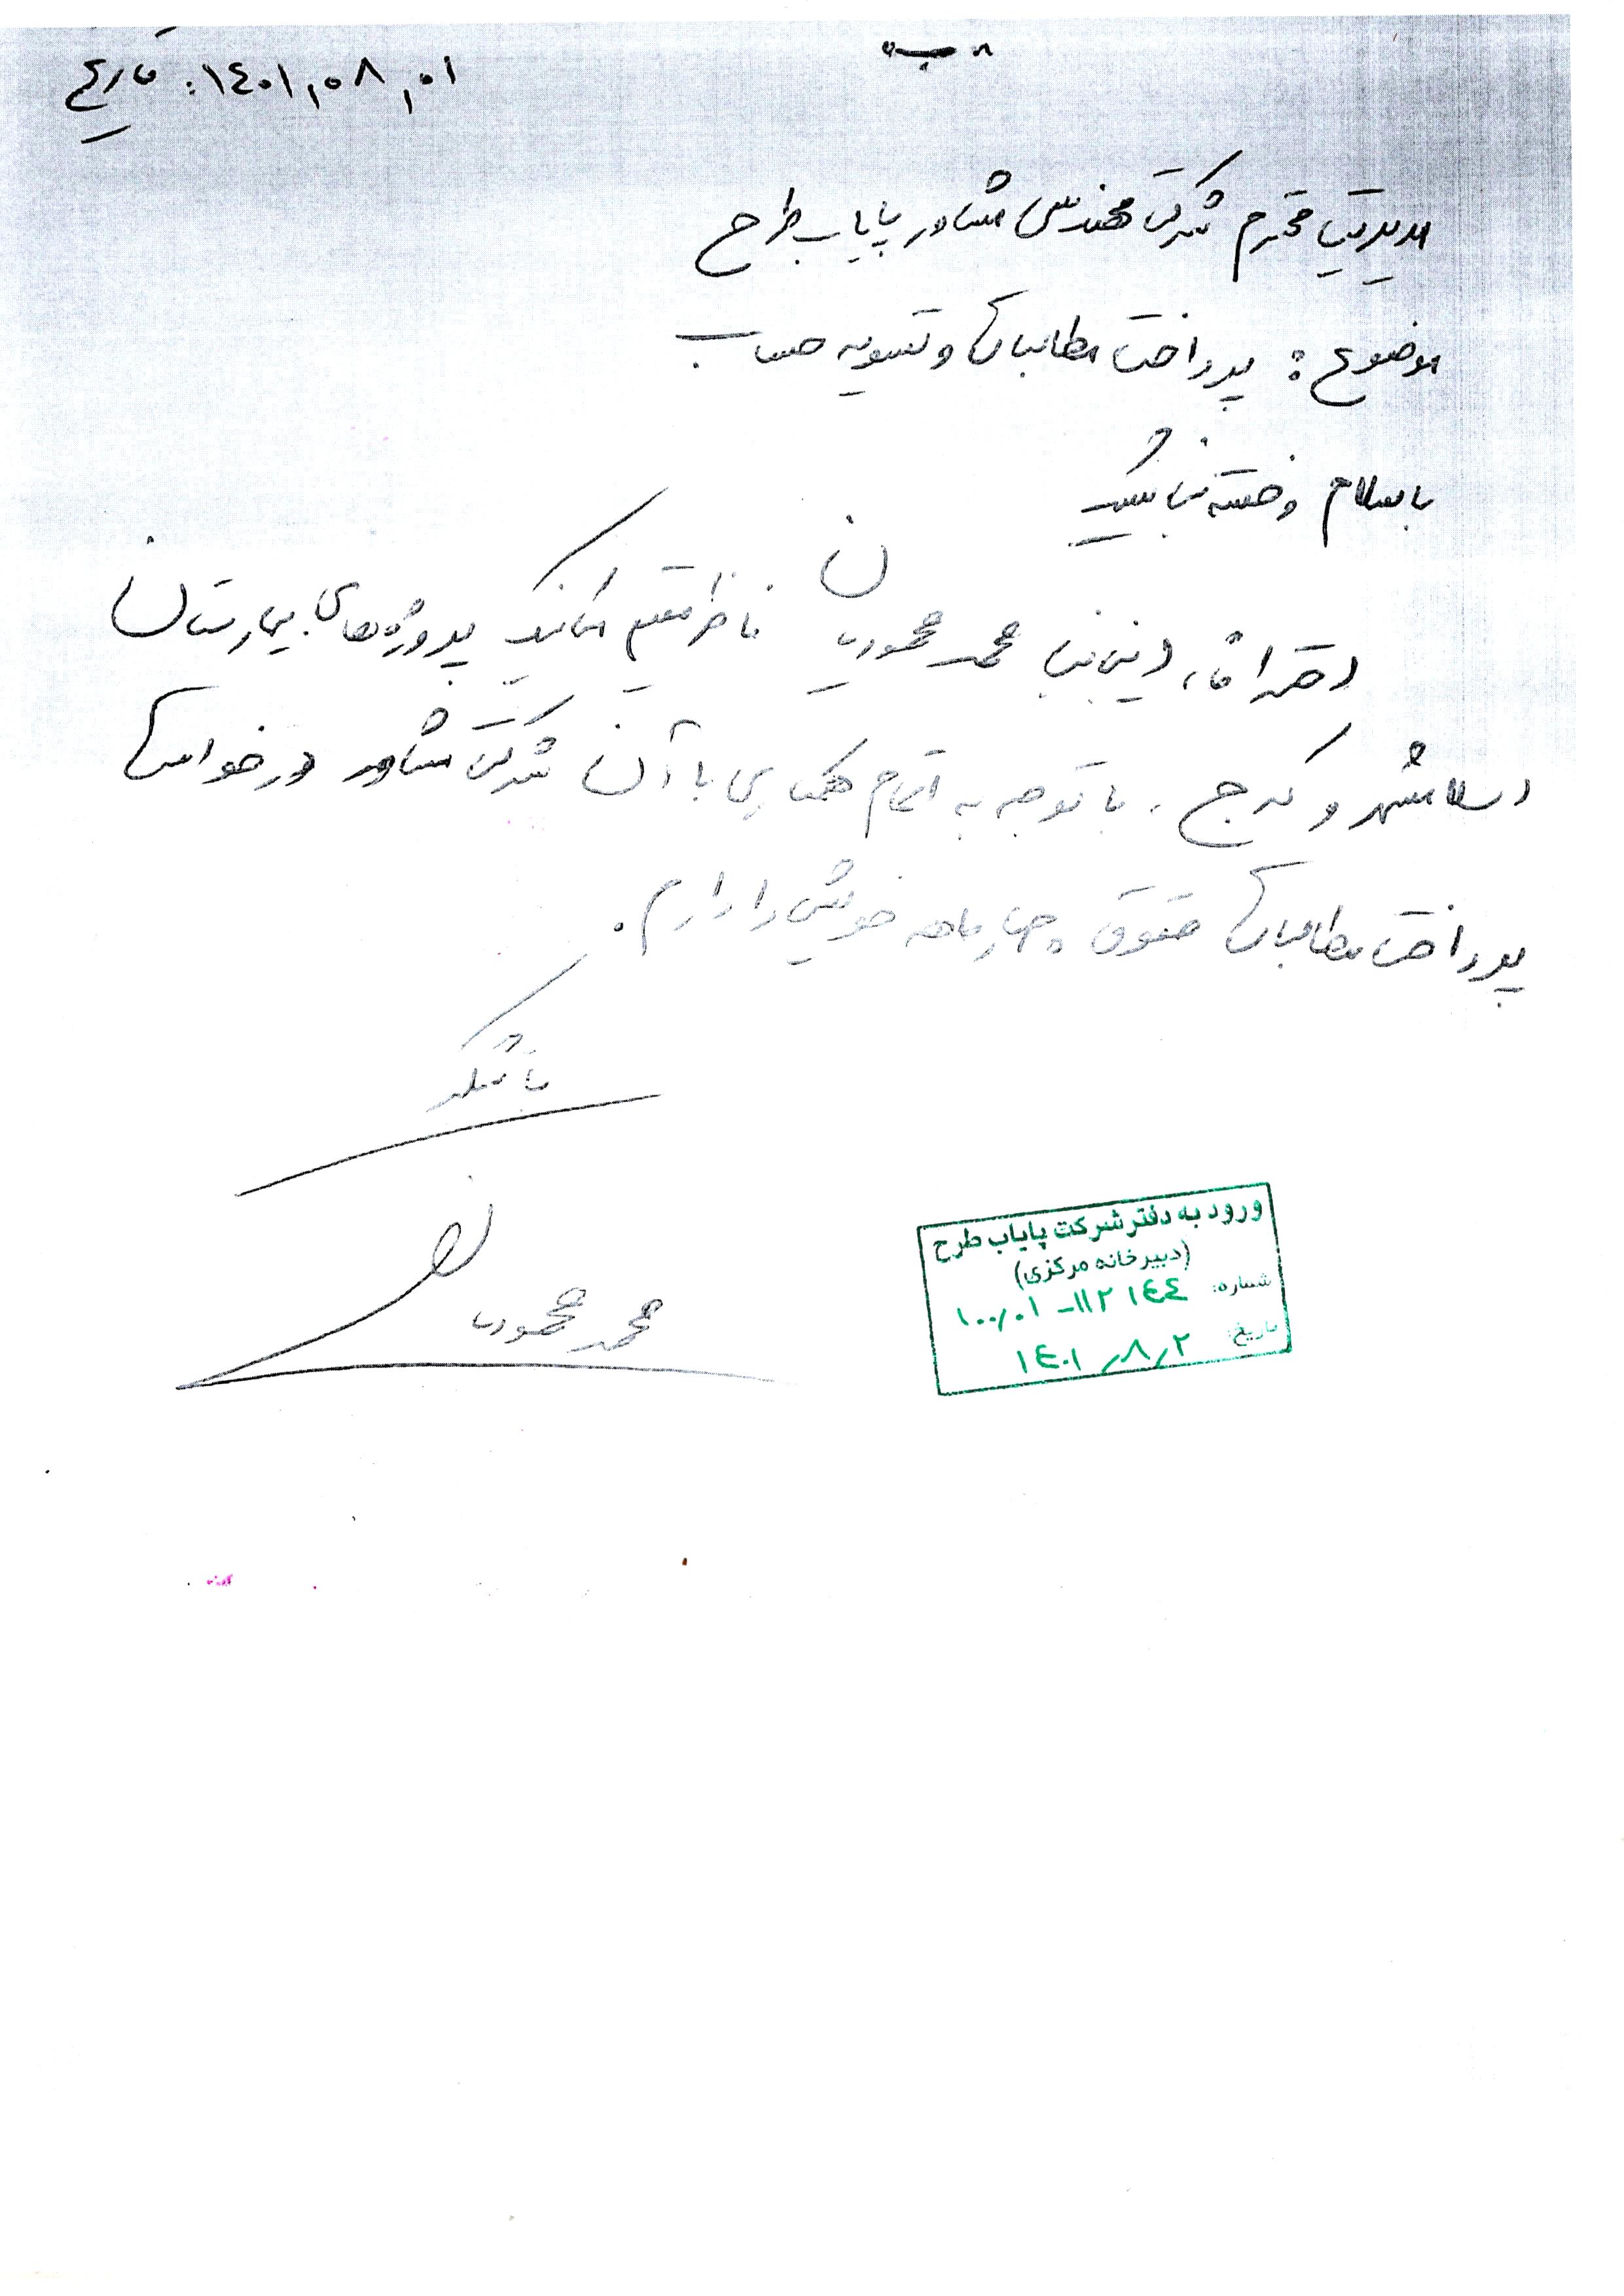 تاریخ: ۱٤۰۱,۰۸,۰۱
مدیریت محترم شرکت مهندسی مشاور پایاب طرح
موضوع: پرداخت مطالبات و تسویه حساب
با سلام و خسته نباشید
احتراما، اینجانب محمد محمودیان ناظر مقیم مکانیک پروژه‌های بیمارستان
اسلامشهر و کرج، با توجه به اتمام همکاری با آن شرکت مشاور درخواست
پرداخت مطالبات حقوق چهار ماهه خویش را دارم.
با تشکر
محمد محمودیان
ورود به دفتر شرکت پایاب طرح
(دبیرخانه مرکزی)
شماره: ۱۰۰٫۰۱ -۱۱۲ ۱٤٤
تاریخ: ۱٤۰۱٫۸٫۲